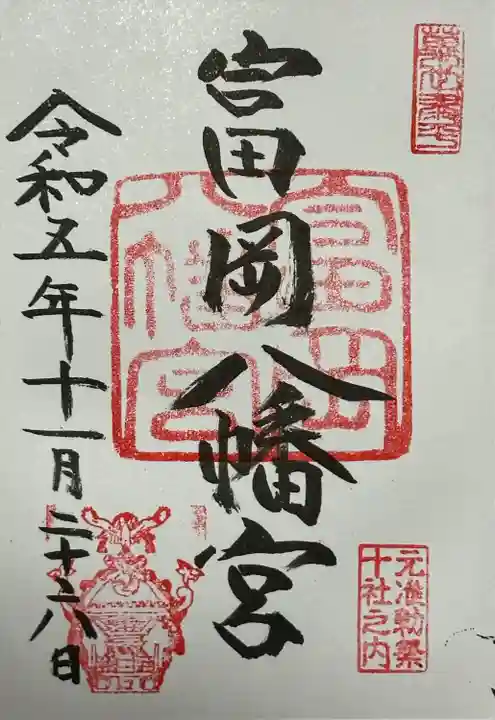 富岡八幡宮
令和五年十一月二十六日
富岡
八幡宮
元准勅祭
十社之内